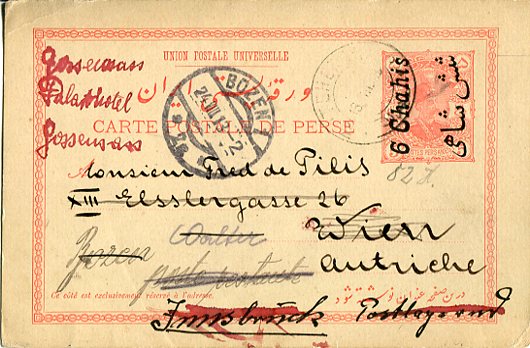 UNION POSTALE UNIVERSELLE
Gossensass
Palasthotel
Gossensass
BOZEN
24.VII.13
ورقه پستی ایران
CARTE POSTALE DE PERSE
6 Chahis
شش شاهی
82
Monsieur Fred de Pilis
XIII Elsslergasse 26
Wien
Autriche
Bozen
Walter
poste restante
Ce côté est exclusivement réservé à l'adresse.
درین صفحه عنوان نوشته شود
Innsbruck Postlagernd